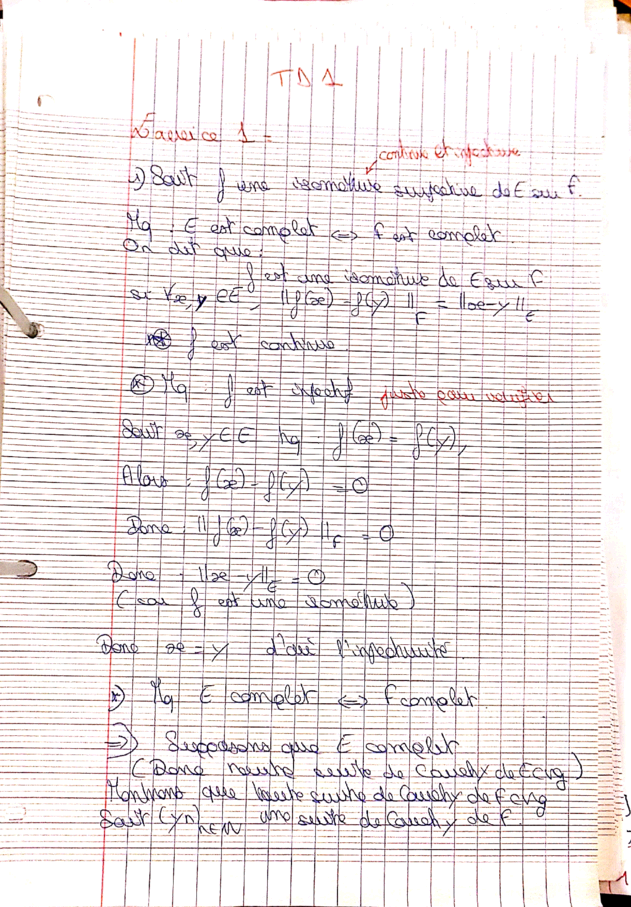 TD 1
Exercice 1 =
continue et injective
1) Soit f une isométrie surjective de E sur F.
Mq : E est complet <=> F est complet.
On dit que :
f est une isométrie de E sur F
si ∀x, y ∈ E, ||f(x) - f(y)||_F = ||x - y||_E
* f est continue
* Mq : f est injectif juste pour vérifier
Soit x, y ∈ E tq : f(x) = f(y),
Alors : f(x) - f(y) = 0
Donc : ||f(x) - f(y)||_F = 0
Donc : ||x - y||_E = 0
(car f est une isométrie)
Donc x = y d'où l'injectivité.
* Mq E complet <=> F complet.
=>) Supposons que E complet
(Donc toute suite de Cauchy de E cvg)
Montrons que toute suite de Cauchy de F cvg
Soit (yn)n∈ℕ une suite de Cauchy de F.